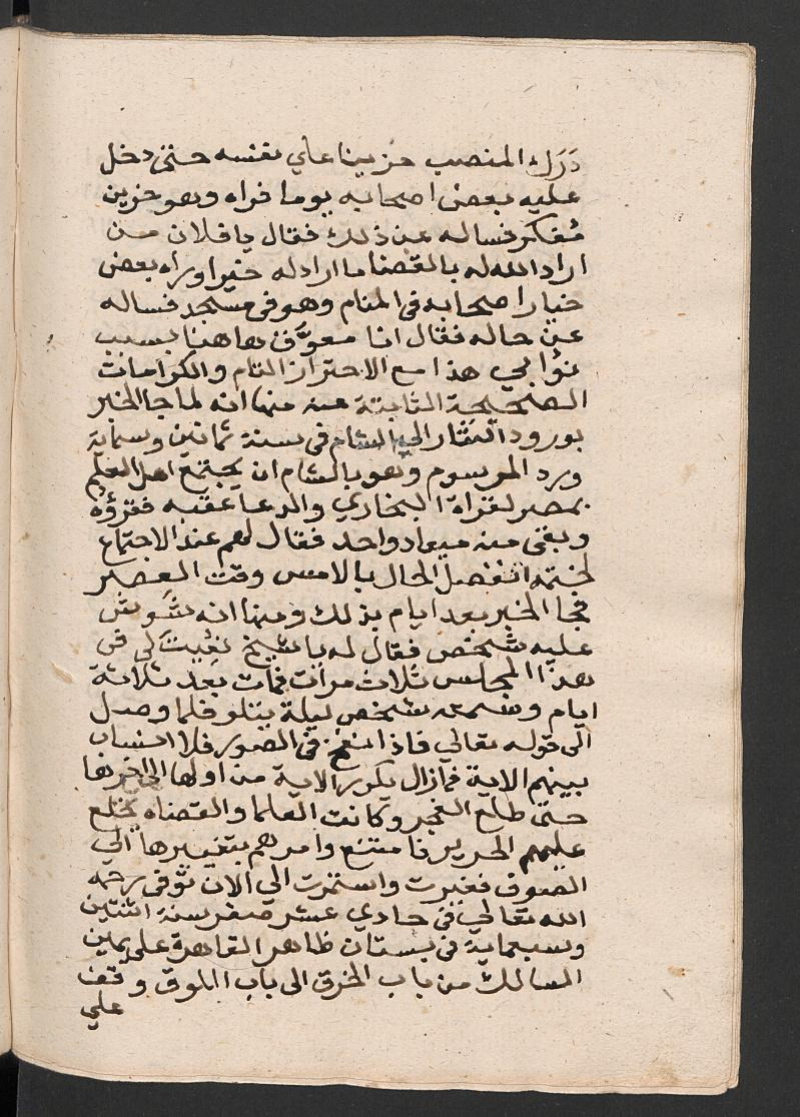 دَرَك المنصب حزينا علي نفسه حتى دخل
عليه بعض اصحابه يوما فراه وهو حزين
مُفكر فساله عن ذلك فقال يا فلان من
اراد الله له بالقضا ما اراد له خيرا وراه بعض
خيار اصحابه في المنام وهو في مسجد فساله
عن حاله فقال انا معوَّق هاهنا بسبب
نوابي هذا مع الاحتراز التام والكرامات
الصحيحة الثابتة عنه منها انه لما جا الخبر
بورود التتار الي الشام في سنة ثمانين وستماية
ورد المرسوم وهو بالشام ان يجتمع اهل العلم
بمصر لقراة البخاري والدعا عقبه فقرؤه
وبقى منه ميعاد واحد فقال لهم عند الاجتماع
لختمه انفصل الحال بالامس وقت العصر
فجا الخبر بعد ايام بذلك ومنها انه شوش
عليه شخص فقال له يا شيخ نعيت لى فى
هذا المجلس ثلاث مرات فمات بعد ثلاثة
ايام وسمعه شخص ليلة يتلو فلما وصل
الى قوله تعالي فاذا نفخ في الصور فلا انساب
بينهم الاية فمازال يكرر الاية من اولها الى اخرها
حتى طلع الفجر وكانت العلما والقضاه يخلع
عليهم الحرير فامتنع وامرهم بتغييرها الي
الصوف فغيرت واستمرت الي الان توفى رحمه
الله تعالي في حادي عشر صفر سنة اثنتين
وسبعماية فى بستان ظاهر القاهرة على يمين
السالك من باب الخرق الى باب اللوق وقف
علي